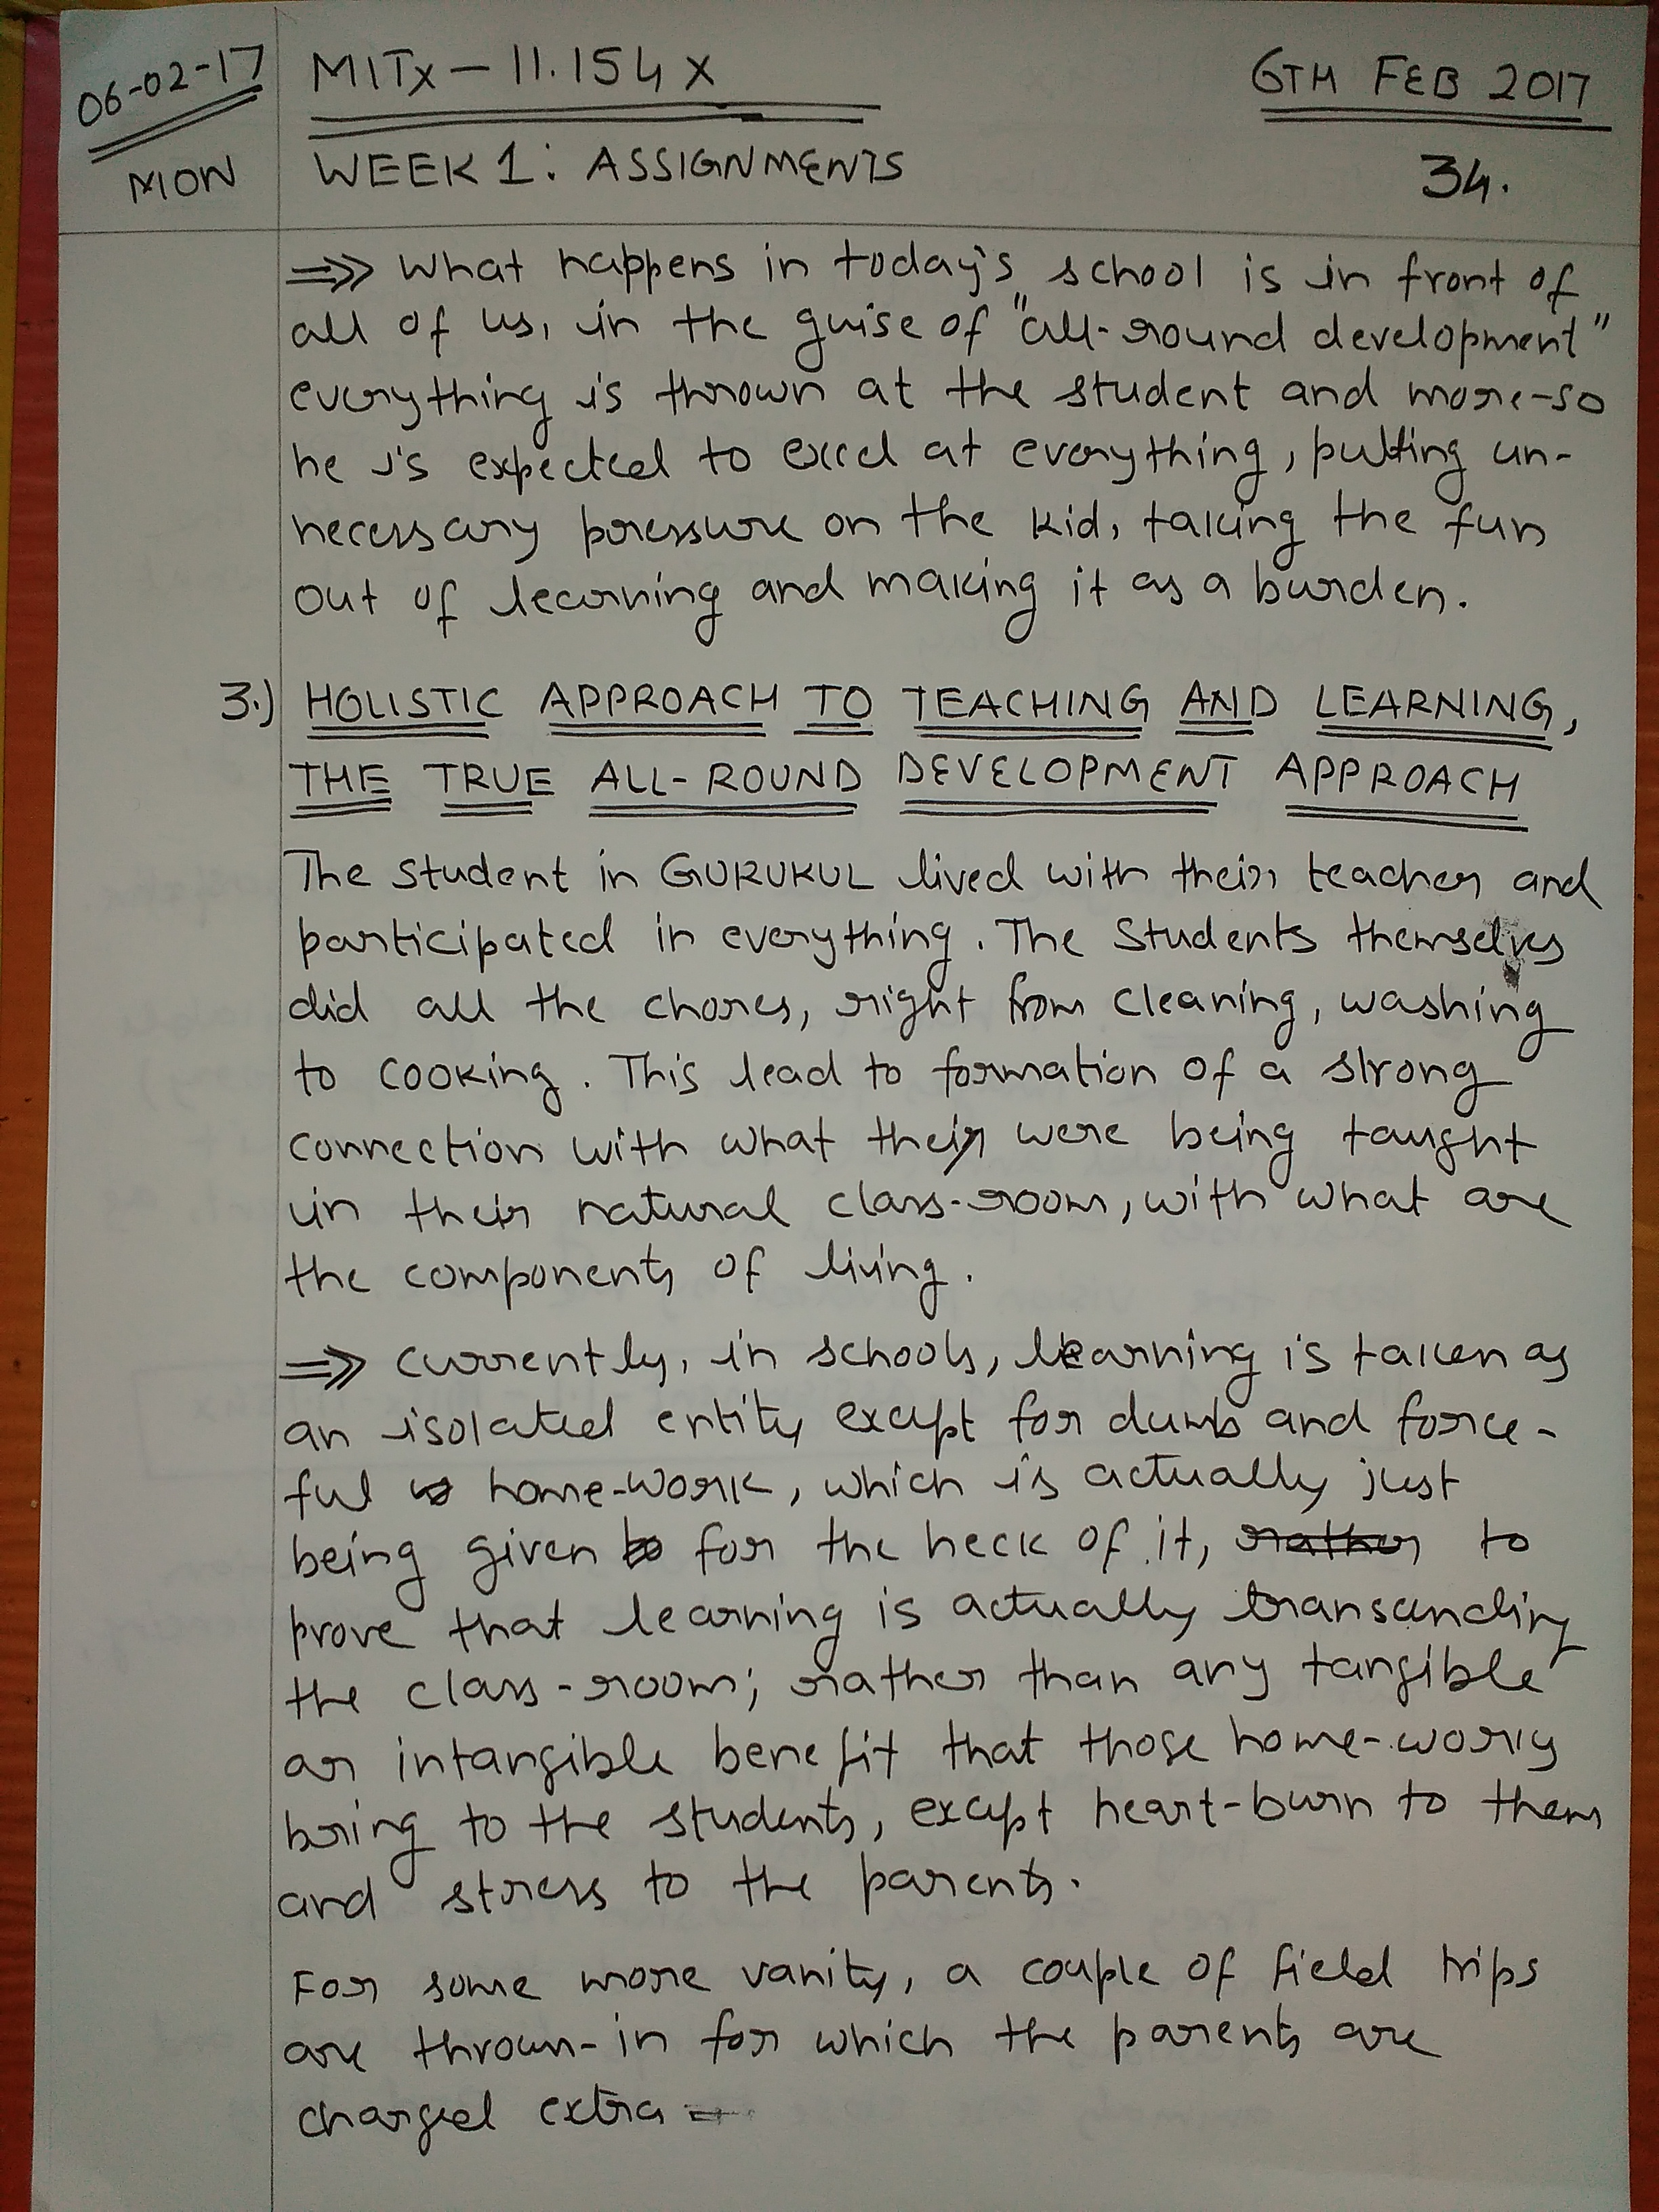 06-02-17
MON
MITx - 11.154x
6TH FEB 2017
WEEK 1: ASSIGNMENTS
34.
⇒> What happens in today's school is in front of
all of us, in the guise of "all-round development"
everything is thrown at the student and more-so
he is expected to excel at everything, putting un-
necessary pressure on the kid, taking the fun
out of learning and making it as a burden.
3.) HOLISTIC APPROACH TO TEACHING AND LEARNING,
THE TRUE ALL-ROUND DEVELOPMENT APPROACH
The student in GURUKUL lived with their teacher and
participated in everything. The Students themselves
did all the chores, right from cleaning, washing
to cooking. This lead to formation of a strong
connection with what they were being taught
in their natural class-room, with what are
the components of living.
⇒> Currently, in schools, learning is taken as
an isolated entity except for dumb and force-
ful home-work, which is actually just
being given for the heck of it, rather to
prove that learning is actually transcending
the class-room; rather than any tangible
or intangible benefit that those home-works
bring to the students, except heart-burn to them
and stress to the parents.
For some more vanity, a couple of field trips
are thrown-in for which the parents are
charged extra